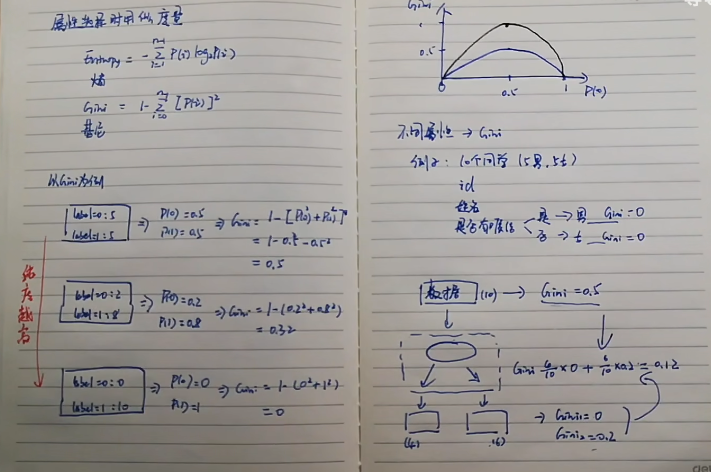 属性选择时用纯度量
Entropy = - Σ P(i) log₂P(i)
熵
Gini = 1 - Σ [P(i)]²
基尼
以Gini为例
label=0:5
label=1:5
⇒ P(0)=0.5
P(1)=0.5
⇒ Gini = 1-[P(0)²+P(1)²]
= 1-0.5²-0.5²
= 0.5
label=0:2
label=1:8
⇒ P(0)=0.2
P(1)=0.8
⇒ Gini = 1-(0.2²+0.8²)
= 0.32
label=0:0
label=1:10
⇒ P(0)=0
P(1)=1
⇒ Gini = 1-(0²+1²)
= 0
纯度越高
Gini
1
0.5
0
0.5
1
P(0)
不同属性 → Gini
例子: 10个同学 (5男,5女)
id
姓名
是 → 男 Gini=0
否 → 女 Gini=0
数据 (10) → Gini=0.5
Gini 4/10×0 + 6/10×0.2 = 0.12
(4)
(6)
→ Gini1=0
Gini2=0.2